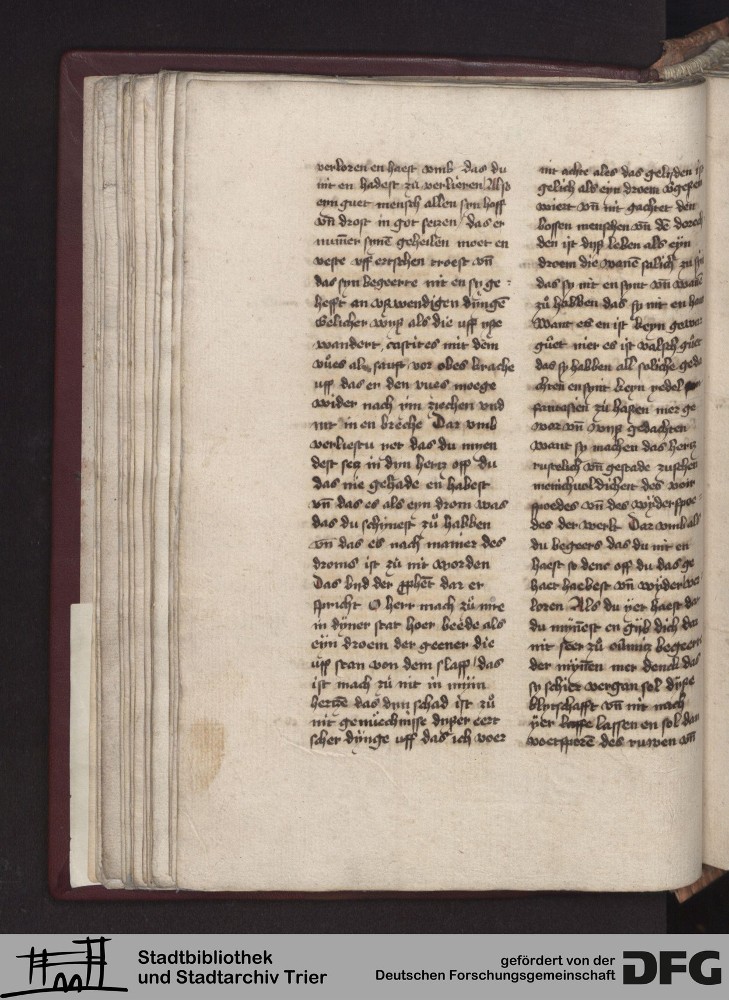 verloren en haest vmb das du
nit en hadest zü verlieren Also
eyn guet mensch allen syn hoff
vn̄ drost in got setzen das er
num̄er synē geheilen moet en
veste vff ertschen troest vn̄
das syn begeerte nit en sy ge
hefft an vßwendigen dūngē
Gelicher wyß als die vff yse
wandert
vües als sauft vor obes brache
vff das er den vues moege
wider nach ym ziechen vnd
nit in en breche Dar vmb
verliestu net das du mynen
dest setz in dyn hertz off du
das nie gehade en habest
vn̄ das es als eyn drom was
das du schinest zü habben
vn̄ das es nach manier des
droms ist zü nit worden
Das byd der ꝓphet dar er
spricht O herr mach zü nite
in dyner stat hoer beede als
eyn droem der geener die
vff stan von dem slaff das
ist mach zü nit in mym
hertzē das dyn schad ist zü
nit gemüechnisse dyser eert
scher dynge vff das ich voer
nit achte ales das gelyden is
gelich als eyn droem
wiert vn̄ nit gachtet den
bossen menschen vn̄ dē
den ist dyß leben als eyn
droem die wanē salich zü syn
das sy nit en synt vn̄ wanē
zü habben das sy nit en haue
Want es en ist keyn gewar
güet mer es ist valsch güet
das sy habben all soliche gede
chten en synt keyn yedel
fantasien zü hassen mer ge
wor vn̄ gwyß gedachten
want sy machen das hertz
rustelich vn̄ gestade zu sehen
menichuoldichert des voir
spoedes vn̄ des wyderspoe
des der werlt Dar vmb als
du begeers das du nit en
haest so denc off du das ge
haet haebest vn̄ wyder ver
loren Als du yer haest das
du mynnest en gyb dich dar
nit seer zü begeert
der mynnen mer denck das
sy schiet vergan sol dyse
blytschafft vn̄ nit nach
yer lassen en sol dan
voetsporē des ruwen vn̄
Stadtbibliothek
und Stadtarchiv Trier
gefördert von der
Deutschen Forschungsgemeinschaft
DFG